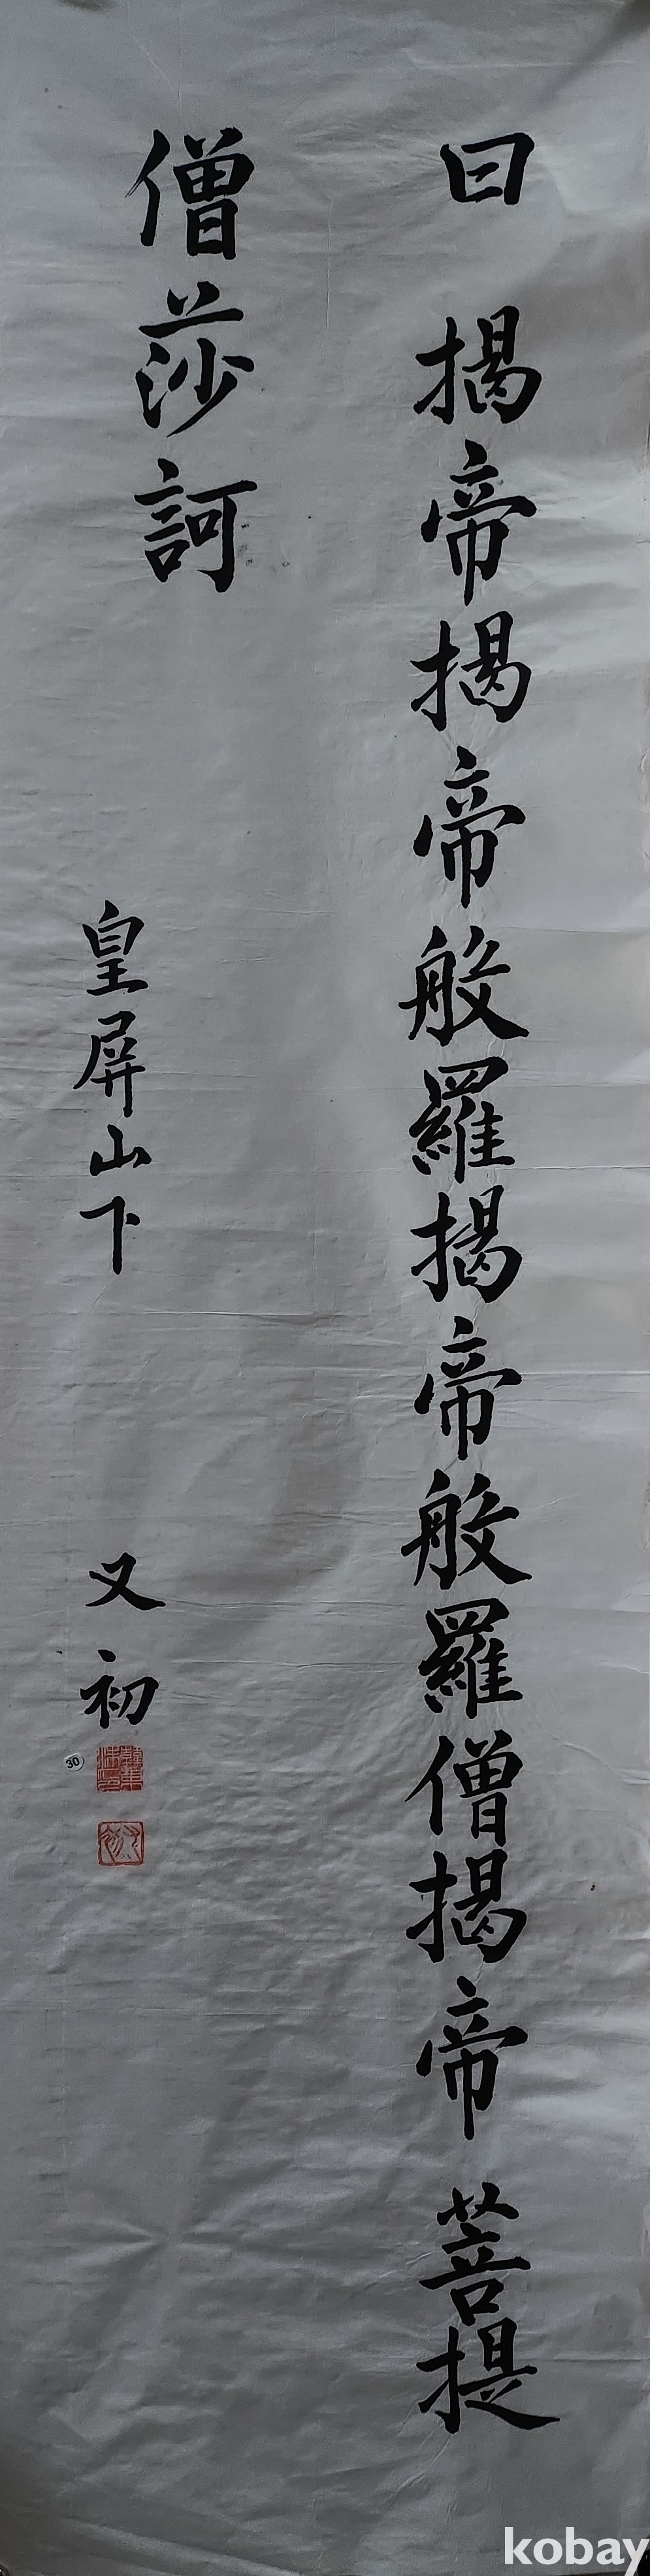 曰 揭帝揭帝般羅揭帝般羅僧揭帝 菩提
僧莎訶
皇屏山下
又初
30
kobay